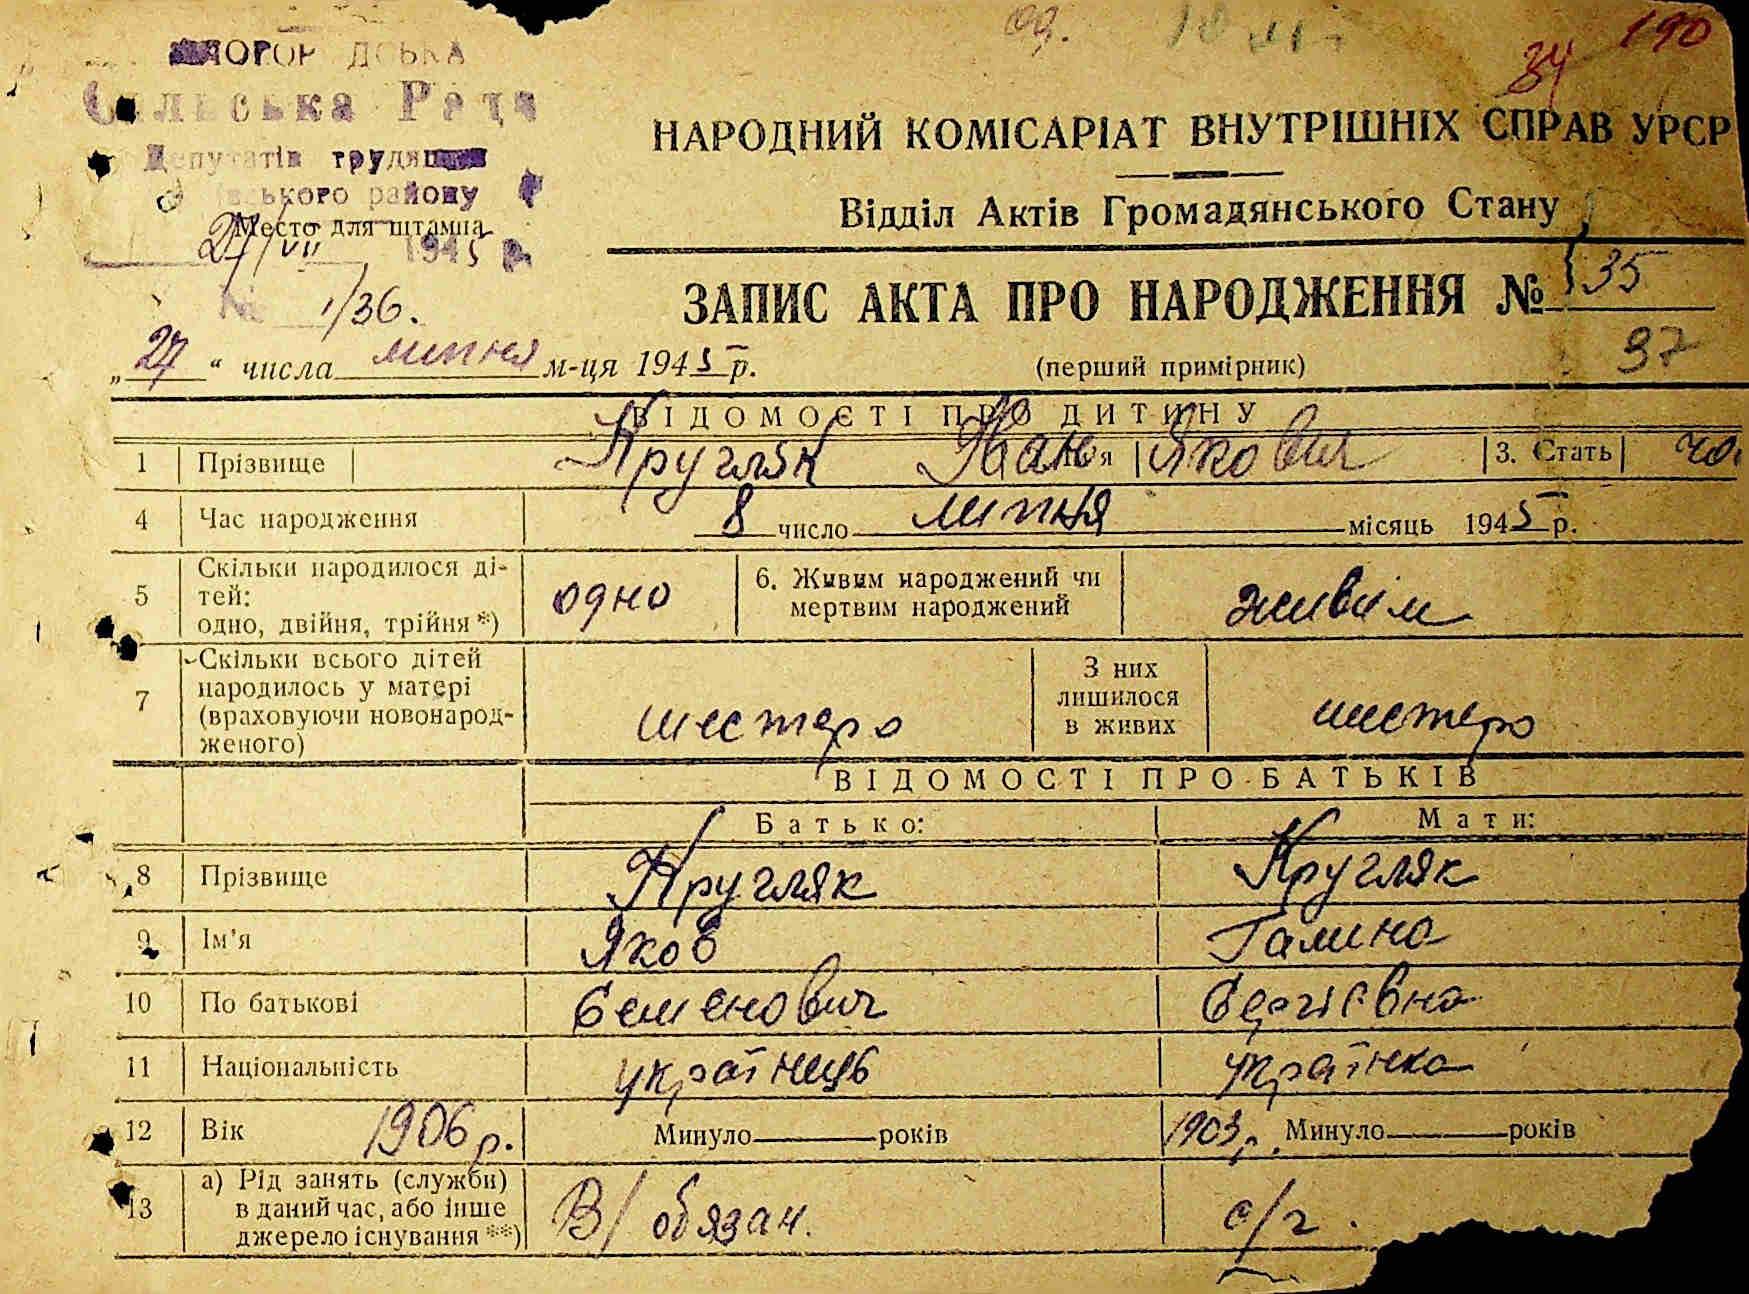 од.
34 190
Сільська Рада
Депутатів
району
Место для штампа
27/VII 1945 р.
№ 1/36.
НАРОДНИЙ КОМІСАРІАТ ВНУТРІШНІХ СПРАВ УРСР
Відділ Актів Громадянського Стану
ЗАПИС АКТА ПРО НАРОДЖЕННЯ № 35
„27“ числа липня м-ця 1945 р.
(перший примірник)
37
ВІДОМОСТІ ПРО ДИТИНУ
1 Прізвище Кругляк Іван Якович 3. Стать чо.
4 Час народження 8 число липня місяць 1945 р.
5 Скільки народилося ді-
тей:
одно, двійня, трійня *) одно
6. Живим народжений чи
мертвим народжений живим
7 Скільки всього дітей
народилось у матері
(враховуючи новонарод-
женого) шестеро
З них
лишилося
в живих шестеро
ВІДОМОСТІ ПРО БАТЬКІВ
Батько: Мати:
8 Прізвище Кругляк Кругляк
9 Ім’я Яков Галина
10 По батькові Семенович Сергієвна
11 Національність українець українка
12 Вік 1906 р. Минуло років 1903 р. Минуло років
13 а) Рід занять (служби)
в даний час, або інше
джерело існування **) В/обязан. с/г.